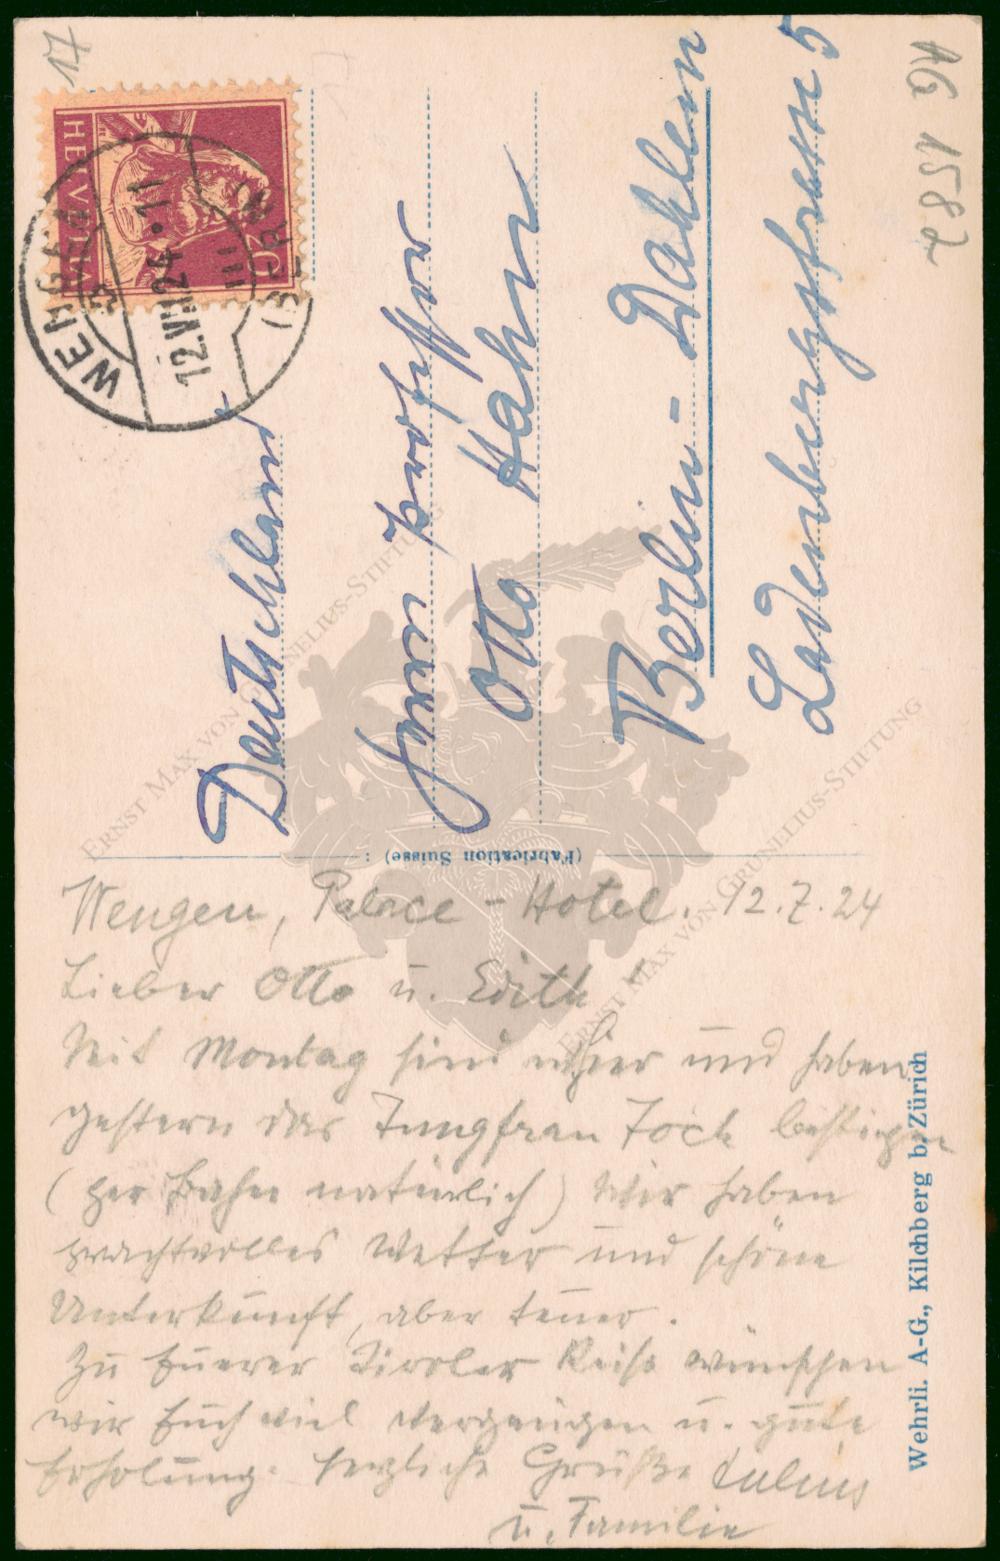 17
AG 1587
HELVETIA
20
WENGEN
(BERN)
12.VII.24•11
III
Deutschland
Herrn Professor
Otto Hahn
Berlin-Dahlem
Ladenbergstrasse 5
(Fabrication Suisse) :
Wengen, Palace-Hotel. 12.7.24
Lieber Otto u. Edith
Seit Montag sind wir hier und haben
gestern das Jungfrau Joch bestiegen
(per Bahn natürlich) Wir haben
prachtvolles Wetter und schöne
Unterkunft, aber teuer.
Zu Euerer Tiroler Reise wünschen
wir Euch viel Vergnügen u. gute
Erholung. Herzliche Grüße Julius
u. Familie
Wehrli. A-G., Kilchberg b. Zürich
ERNST MAX VON GRUNELIUS-STIFTUNG
ERNST MAX VON GRUNELIUS-STIFTUNG